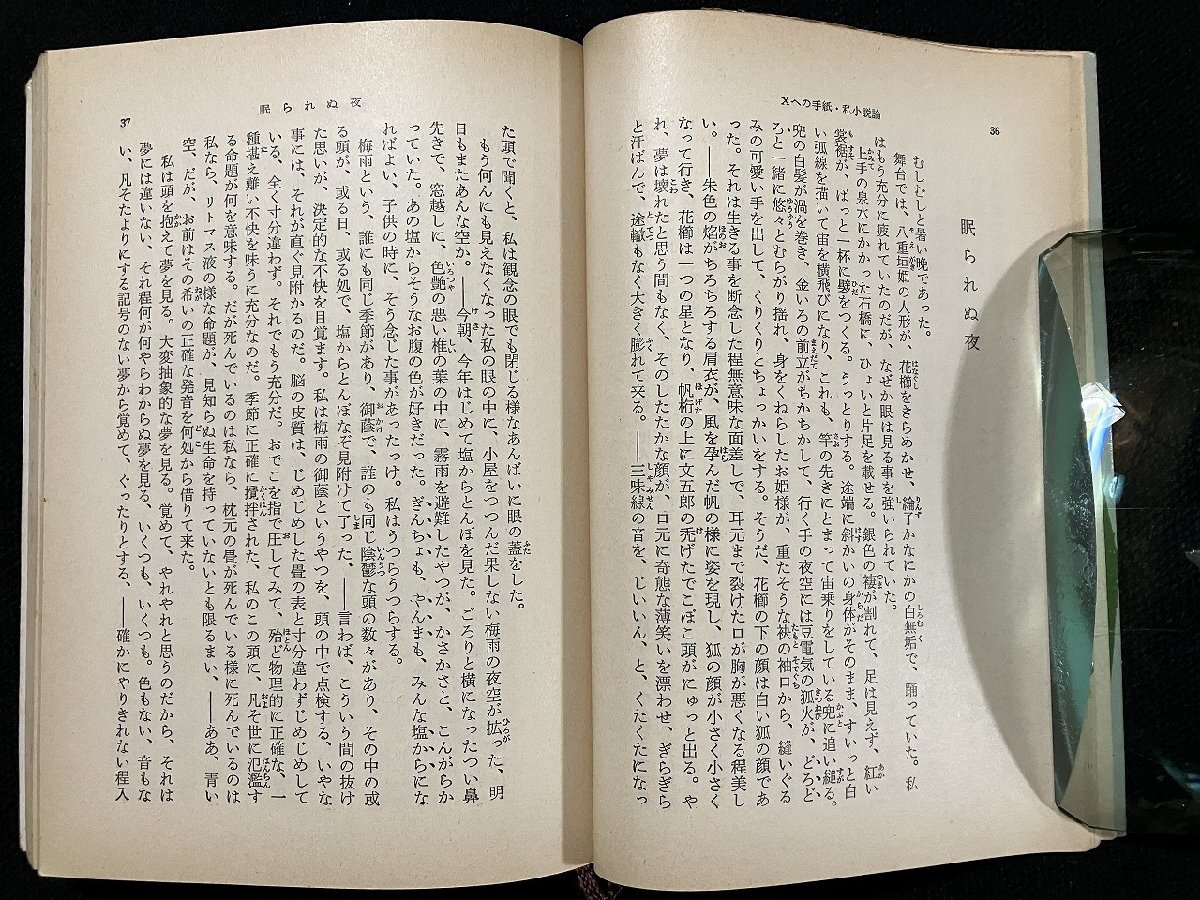 Xへの手紙・私小説論
36
眠られぬ夜
むしむしと暑い晩であった。
舞台では、八重垣姫の人形が、花櫛をきらめかせ、綸子かなにかの白無垢で、踊っていた。私
はもう充分に疲れていたのだが、なぜか眼は見る事を強いられていた。
上手の泉水にかかった石橋に、ひょいと片足を載せる。銀色の褄が割れて、足は見えず、紅い
裳裾が、ぱっと一杯に襞をつくる。うっとりする。途端に斜かいの身体がそのまま、すいっと白
い弧線を描いて宙を横飛びになり、これも、竿の先きにとまって宙乗りをしている兜に追い縋る。
兜の白髪が渦を巻き、金いろの前立がちかちかして、行く手の夜空には豆電気の狐火が、どろど
ろと一緒に悠々とむらがり揺れ、身をくねらしたお姫様が、重たそうな袂の袖口から、縫いぐる
みの可愛い手を出して、くりくりとちょっかいをする。そうだ、花櫛の下の顔は白い狐の顔であ
った。それは生きる事を断念した程無意味な面差しで、耳元まで裂けた口が胸が悪くなる程美し
い。――朱色の焰がちろちろする肩衣が、風を孕んだ帆の様に姿を現し、狐の顔が小さく小さく
なって行き、花櫛は一つの星となり、帆桁の上に文五郎の禿げたでこぼこ頭がにゅっと出る。や
れ、夢は壊れたと思う間もなく、そのしたたかな顔が、口元に奇態な薄笑いを漂わせ、ぎらぎら
と汗ばんで、途轍もなく大きく膨れて来る。――三味線の音を、じいいん、と、くたくたになっ
眠られぬ夜
37
た項で聞くと、私は観念の眼でも閉じる様なあんばいに眼の蓋をした。
もう何んにも見えなくなった私の眼の中に、小屋をつつんだ果しない梅雨の夜空が拡った、明
日もまたあんな空か。――今朝、今年はじめて塩からとんぼを見た。ごろりと横になったつい鼻
先きで、窓越しに、色艶の悪い椎の葉の中に、霧雨を避難したやつが、かさかさと、こんがらか
っていた。あの塩からそうなお腹の色が好きだった。ぎんちょも、やんまも、みんな塩からにな
ればよい、子供の時に、そう念じた事があったっけ。私はうつらうつらする。
梅雨という、誰にも同じ季節があり、御蔭で、誰のも同じ陰鬱な頭の数々があり、その中の或
る頭が、或る日、或る処で、塩からとんぼなぞ見附けて了った、――言わば、こういう間の抜け
た思いが、決定的な不快を目覚ます。私は梅雨の御蔭というやつを、頭の中で点検する、いやな
事には、それが直ぐ見附かるのだ。脳の皮質は、じめじめした畳の表と寸分違わずじめじめして
いる、全く寸分違わず。それでもう充分だ。おでこを指で圧してみて、殆ど物理的に正確な、一
種甚え難い不快を味うに充分なのだ。季節に正確に攪拌された、私のこの頭に、凡そ世に氾濫す
る命題が何を意味する。だが死んでいるのは私なら、枕元の畳が死んでいる様に死んでいるのは
私なら、リトマス液の様な命題が、見知らぬ生命を持っていないとも限るまい、――ああ、青い
空、だが、お前はその希いの正確な発音を何処から借りて来た。
私は頭を抱えて夢を見る。大変抽象的な夢を見る。覚めて、やれやれと思うのだから、それは
夢には違いない、それ程何が何やらわからぬ夢を見る、いくつも、いくつも。色もない、音もな
い、凡そたよりにする記号のない夢から覚めて、ぐったりとする、――確かにやりきれない程入